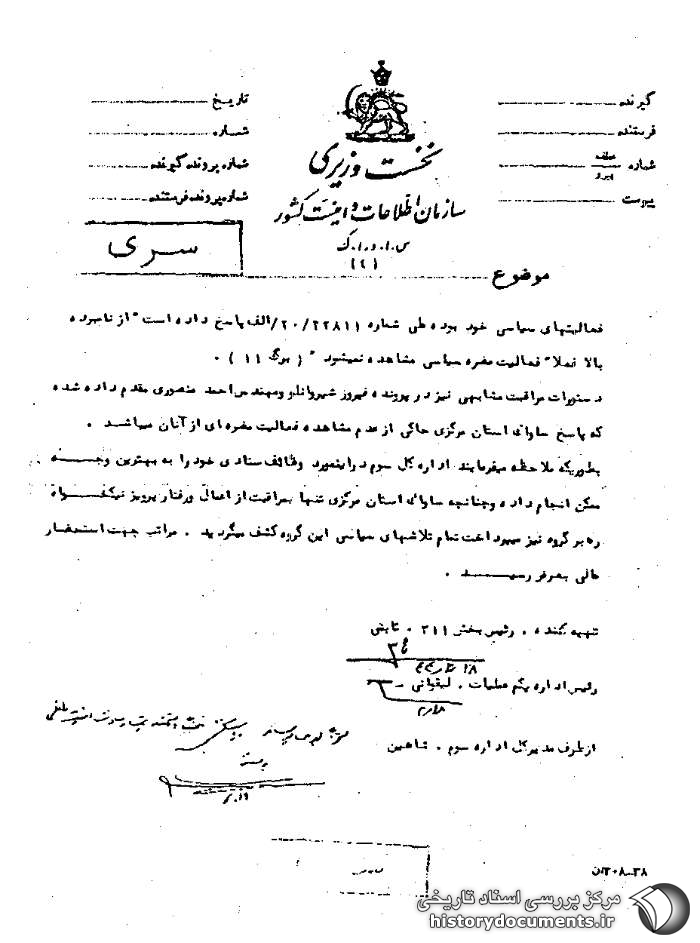 گیرنده
فرستنده
شماره عطف پیرو
پیوست
نخست وزیری
سازمان اطلاعات و امنیت کشور
س.ا.و.ا.ک
(۲)
تاریخ
شماره
شماره پرونده گیرنده
شماره پرونده فرستنده
سری
موضوع
فعالیتهای سیاسی خود بوده طی شماره ۲۲۸۱۱/۲۰/الف پاسخ داده است "از نامبرده
بالا فعلا" فعالیت مضره سیاسی مشاهده نمیشود " (برگ ۱۱) .
دستورات مراقبت مشابهی نیز در پرونده فیروز شیروانلو ومهندس احمد منصوری مقدم داده شده
که پاسخ ساواک استان مرکزی حاکی از عدم مشاهده فعالیت مضره ای از آنان میباشد .
بطوریکه ملاحظه میفرمایند اداره کل سوم در اینمورد وظائف ستادی خود را به بهترین وجه
ممکن انجام داده وچنانچه ساواک استان مرکزی تنها بمراقبت از اعمال ورفتار پرویز نیکخواه
رهبر گروه نیز میپرداخت تمام تلاشهای سیاسی این گروه کشف میگردید . مراتب جهت استحضار
عالی بعرض رسید .
تهیه کننده . رئیس بخش ۲۱۱ . ثابتی
رئیس اداره یکم عملیات .
از طرف مدیر کل اداره سوم . شاهین
مرکز بررسی اسناد تاریخی
historydocuments.ir